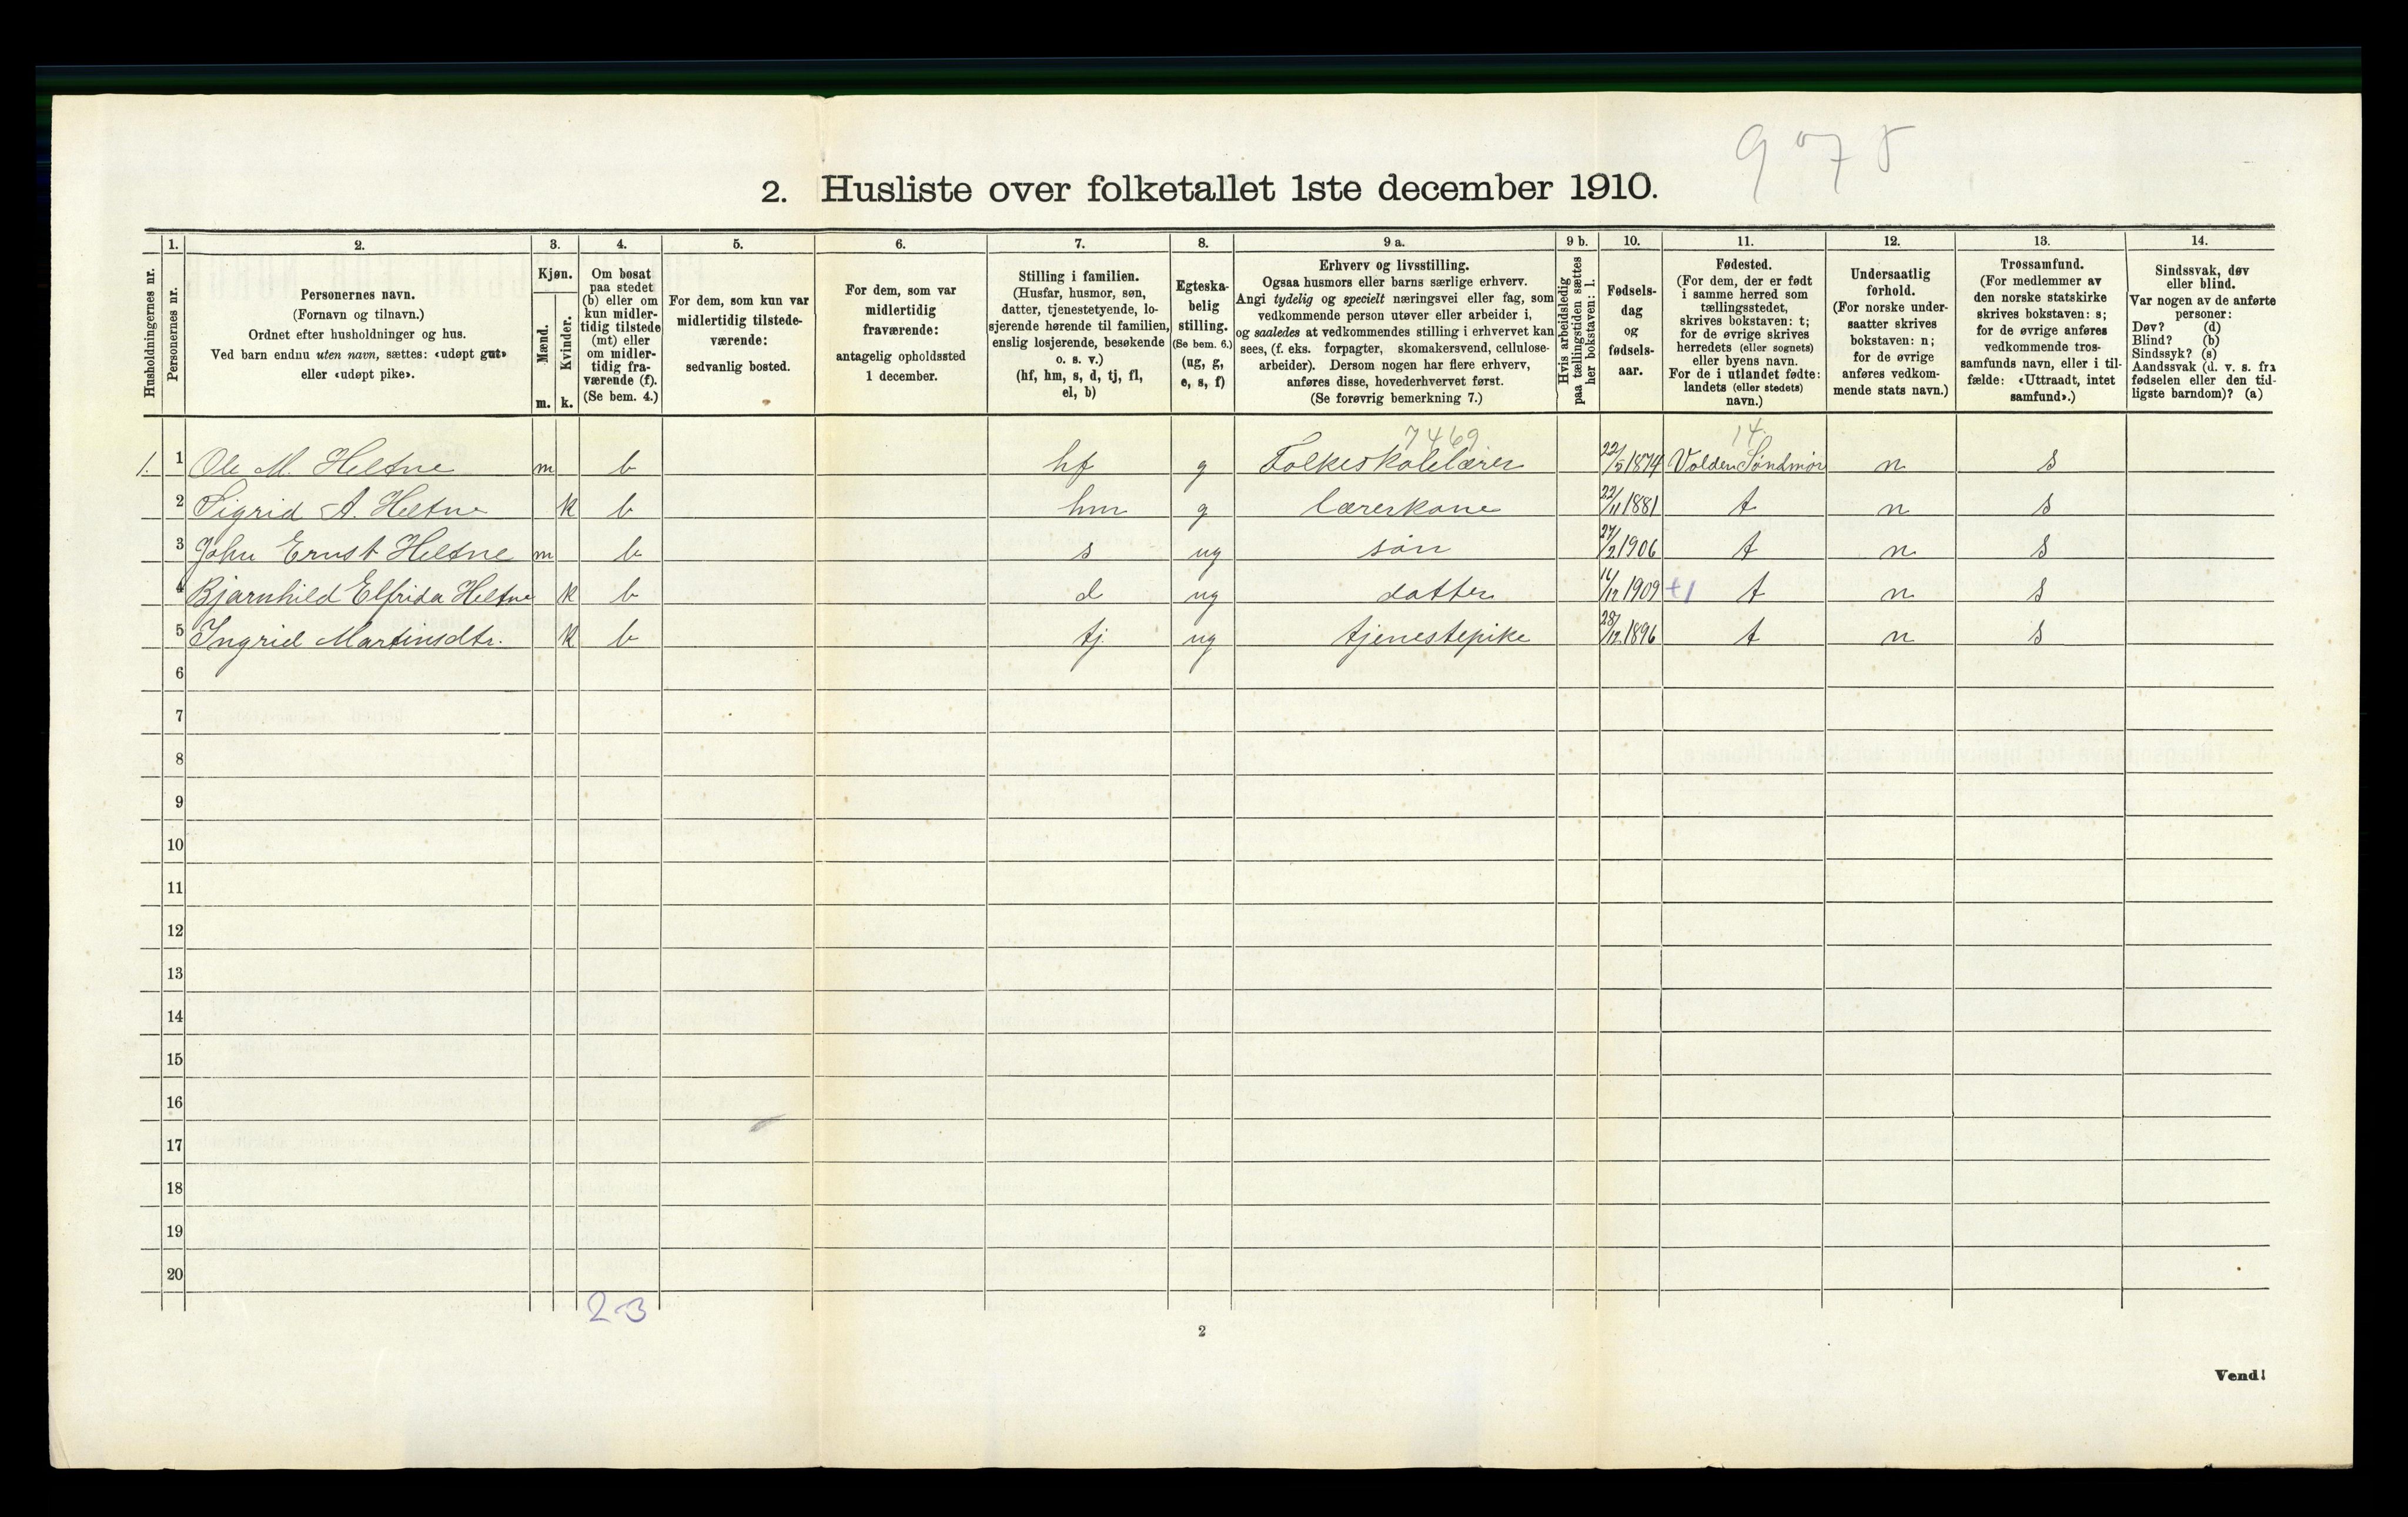 9 0 7 8
2. Husliste over folketallet 1ste december 1910.
1. 2. 3. 4. 5. 6. 7. 8. 9 a. 9 b. 10. 11. 12. 13. 14.
Husholdningernes nr.
Personernes nr.
Personernes navn.
(Fornavn og tilnavn.)
Ordnet efter husholdninger og hus.
Ved barn endnu uten navn, sættes: «udøpt gut»
eller «udøpt pike».
Kjøn.
Mænd.
Kvinder.
m. k.
Om bosat
paa stedet
(b) eller om
kun midler-
tidig tilstede
(mt) eller
om midler-
tidig fra-
værende (f).
(Se bem. 4.)
For dem, som kun var
midlertidig tilstede-
værende:
sedvanlig bosted.
For dem, som var
midlertidig
fraværende:
antagelig opholdssted
1 december.
Stilling i familien.
(Husfar, husmor, søn,
datter, tjenestetyende, lo-
sjerende hørende til familien,
enslig losjerende, besøkende
o. s. v.)
(hf, hm, s, d, tj, fl,
el, b)
Egteska-
belig
stilling.
(Se bem. 6.)
(ug, g,
e, s, f)
Erhverv og livsstilling.
Ogsaa husmors eller barns særlige erhverv.
Angi tydelig og specielt næringsvei eller fag, som
vedkommende person utøver eller arbeider i,
og saaledes at vedkommendes stilling i erhvervet kan
sees, (f. eks. forpagter, skomakersvend, cellulose-
arbeider). Dersom nogen har flere erhverv,
anføres disse, hovederhvervet først.
(Se forøvrig bemerkning 7.)
Hvis arbeidsledig
paa tællingstiden sættes
her bokstaven: l.
Fødsels-
dag
og
fødsels-
aar.
Fødested.
(For dem, der er født
i samme herred som
tællingsstedet,
skrives bokstaven: t;
for de øvrige skrives
herredets (eller sognets)
eller byens navn.
For de i utlandet fødte:
landets (eller stedets)
navn.)
Undersaatlig
forhold.
(For norske under-
saatter skrives
bokstaven: n;
for de øvrige
anføres vedkom-
mende stats navn.)
Trossamfund.
(For medlemmer av
den norske statskirke
skrives bokstaven: s;
for de øvrige anføres
vedkommende tros-
samfunds navn, eller i til-
fælde: «Uttraadt, intet
samfund».)
Sindssvak, døv
eller blind.
Var nogen av de anførte
personer:
Døv? (d)
Blind? (b)
Sindssyk? (s)
Aandssvak (d. v. s. fra
fødselen eller den tid-
ligste barndom)? (a)
7469 14.
1. 1 Ole M. Heltne m b hf g Folkeskolelærer 22/5 1874 Volden Søndmør n s
2 Sigrid A. Heltne k b hm g lærerkone 22/11 1881 t n s
3 John Ernst Heltne m b s ug søn 27/2 1906 t n s
4 Bjarnhild Elfrida Heltne k b d ug datter 16/12 1909 +1 t n s
5 Ingrid Martinsdtr. k b tj. ug tjenestepike 28/12 1896 t n s
6
7
8
9
10
11
12
13
14
15
16
17
18
19
20
2-3
2
Vend!